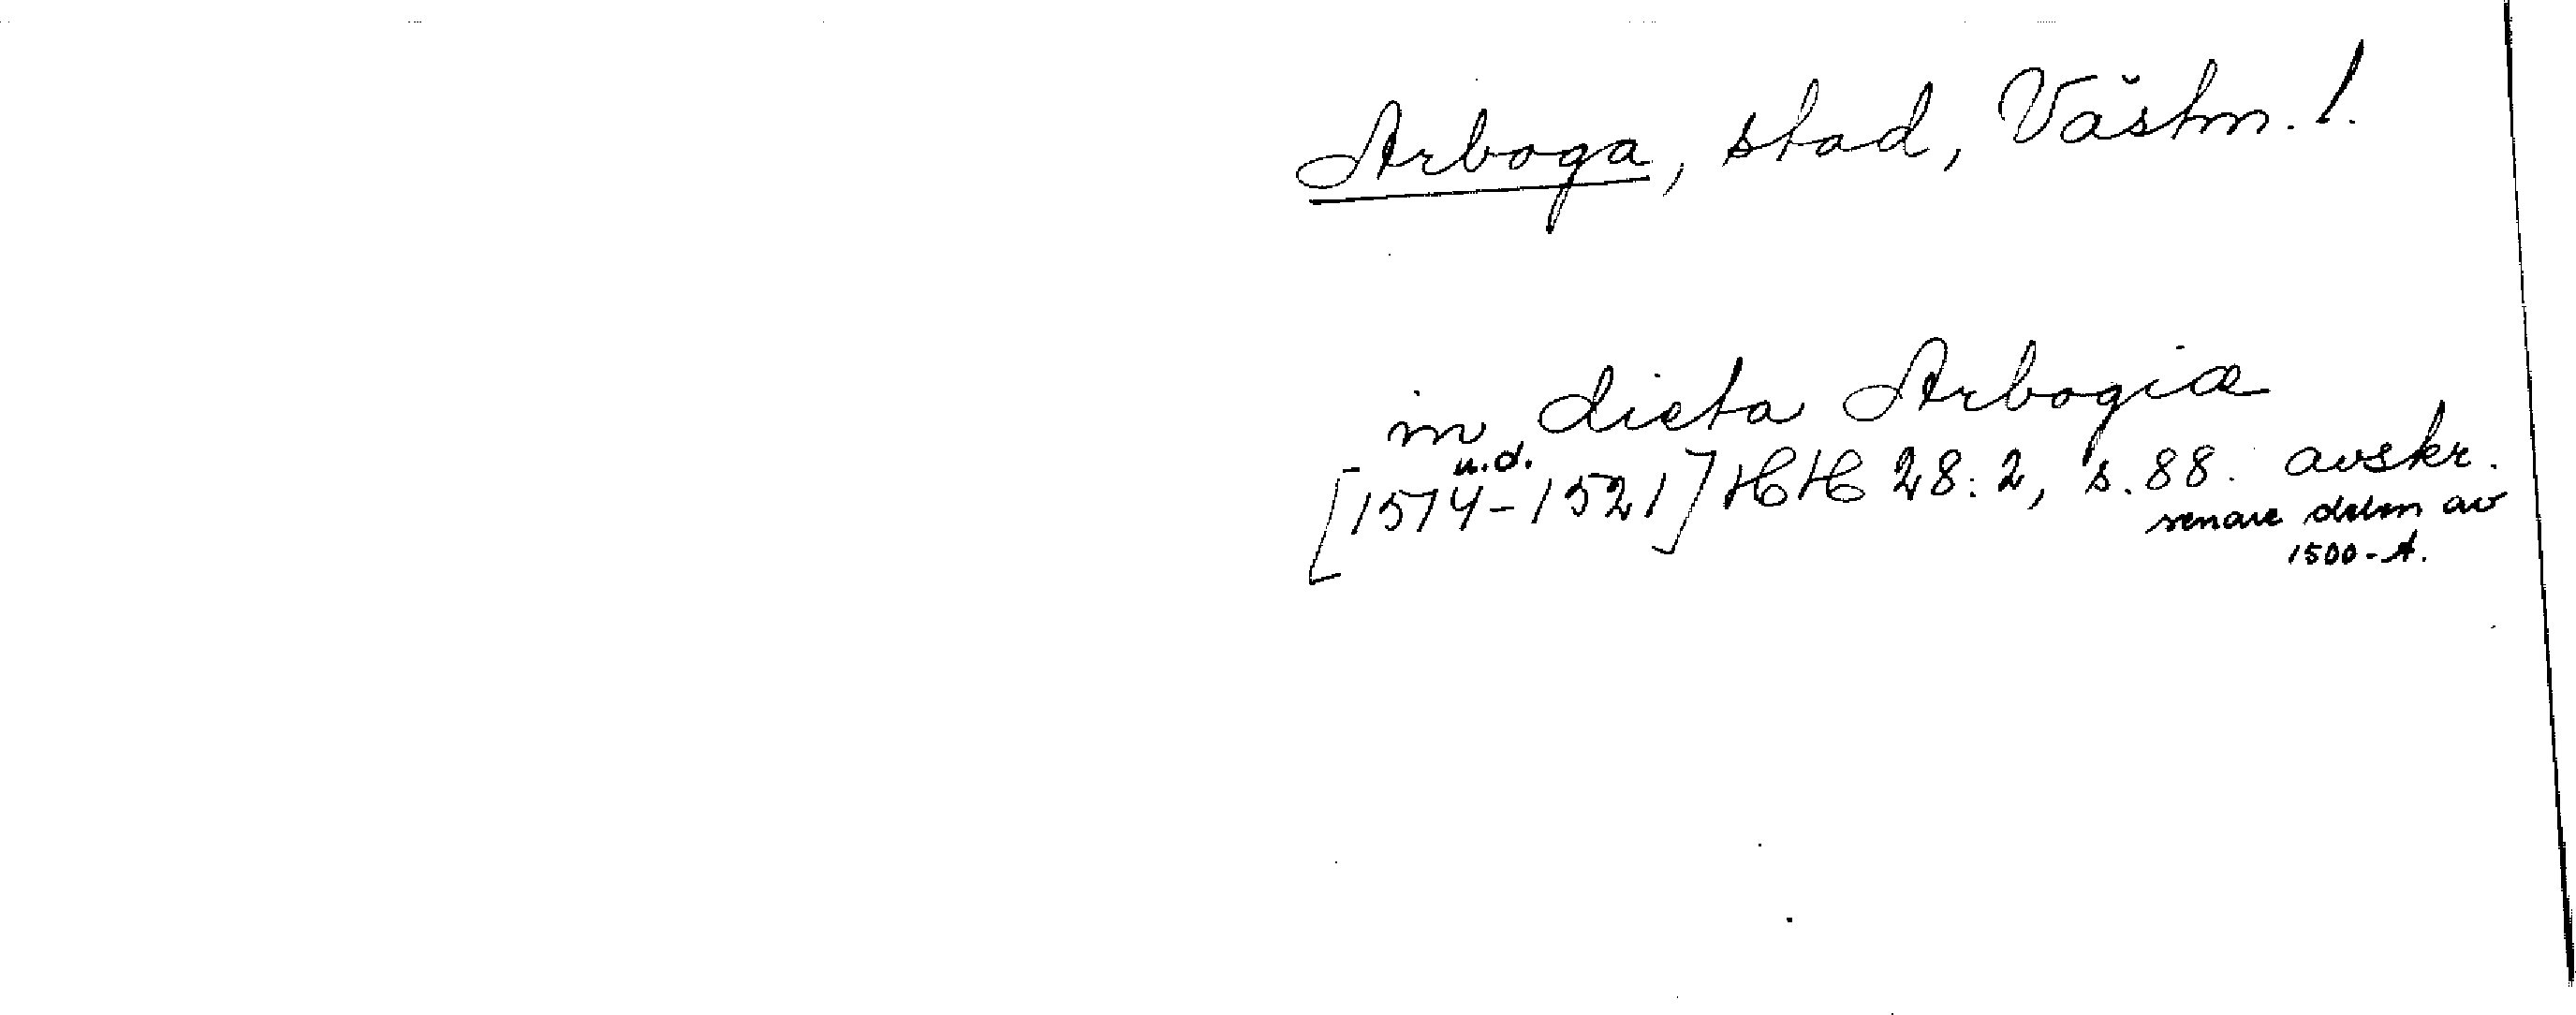 Arboga, stad, Västm. l.
in dieta Arbogiæ
u.d.
[1514-1521] HH 28:2, s. 88. avskr.
senare delen av
1500-t.